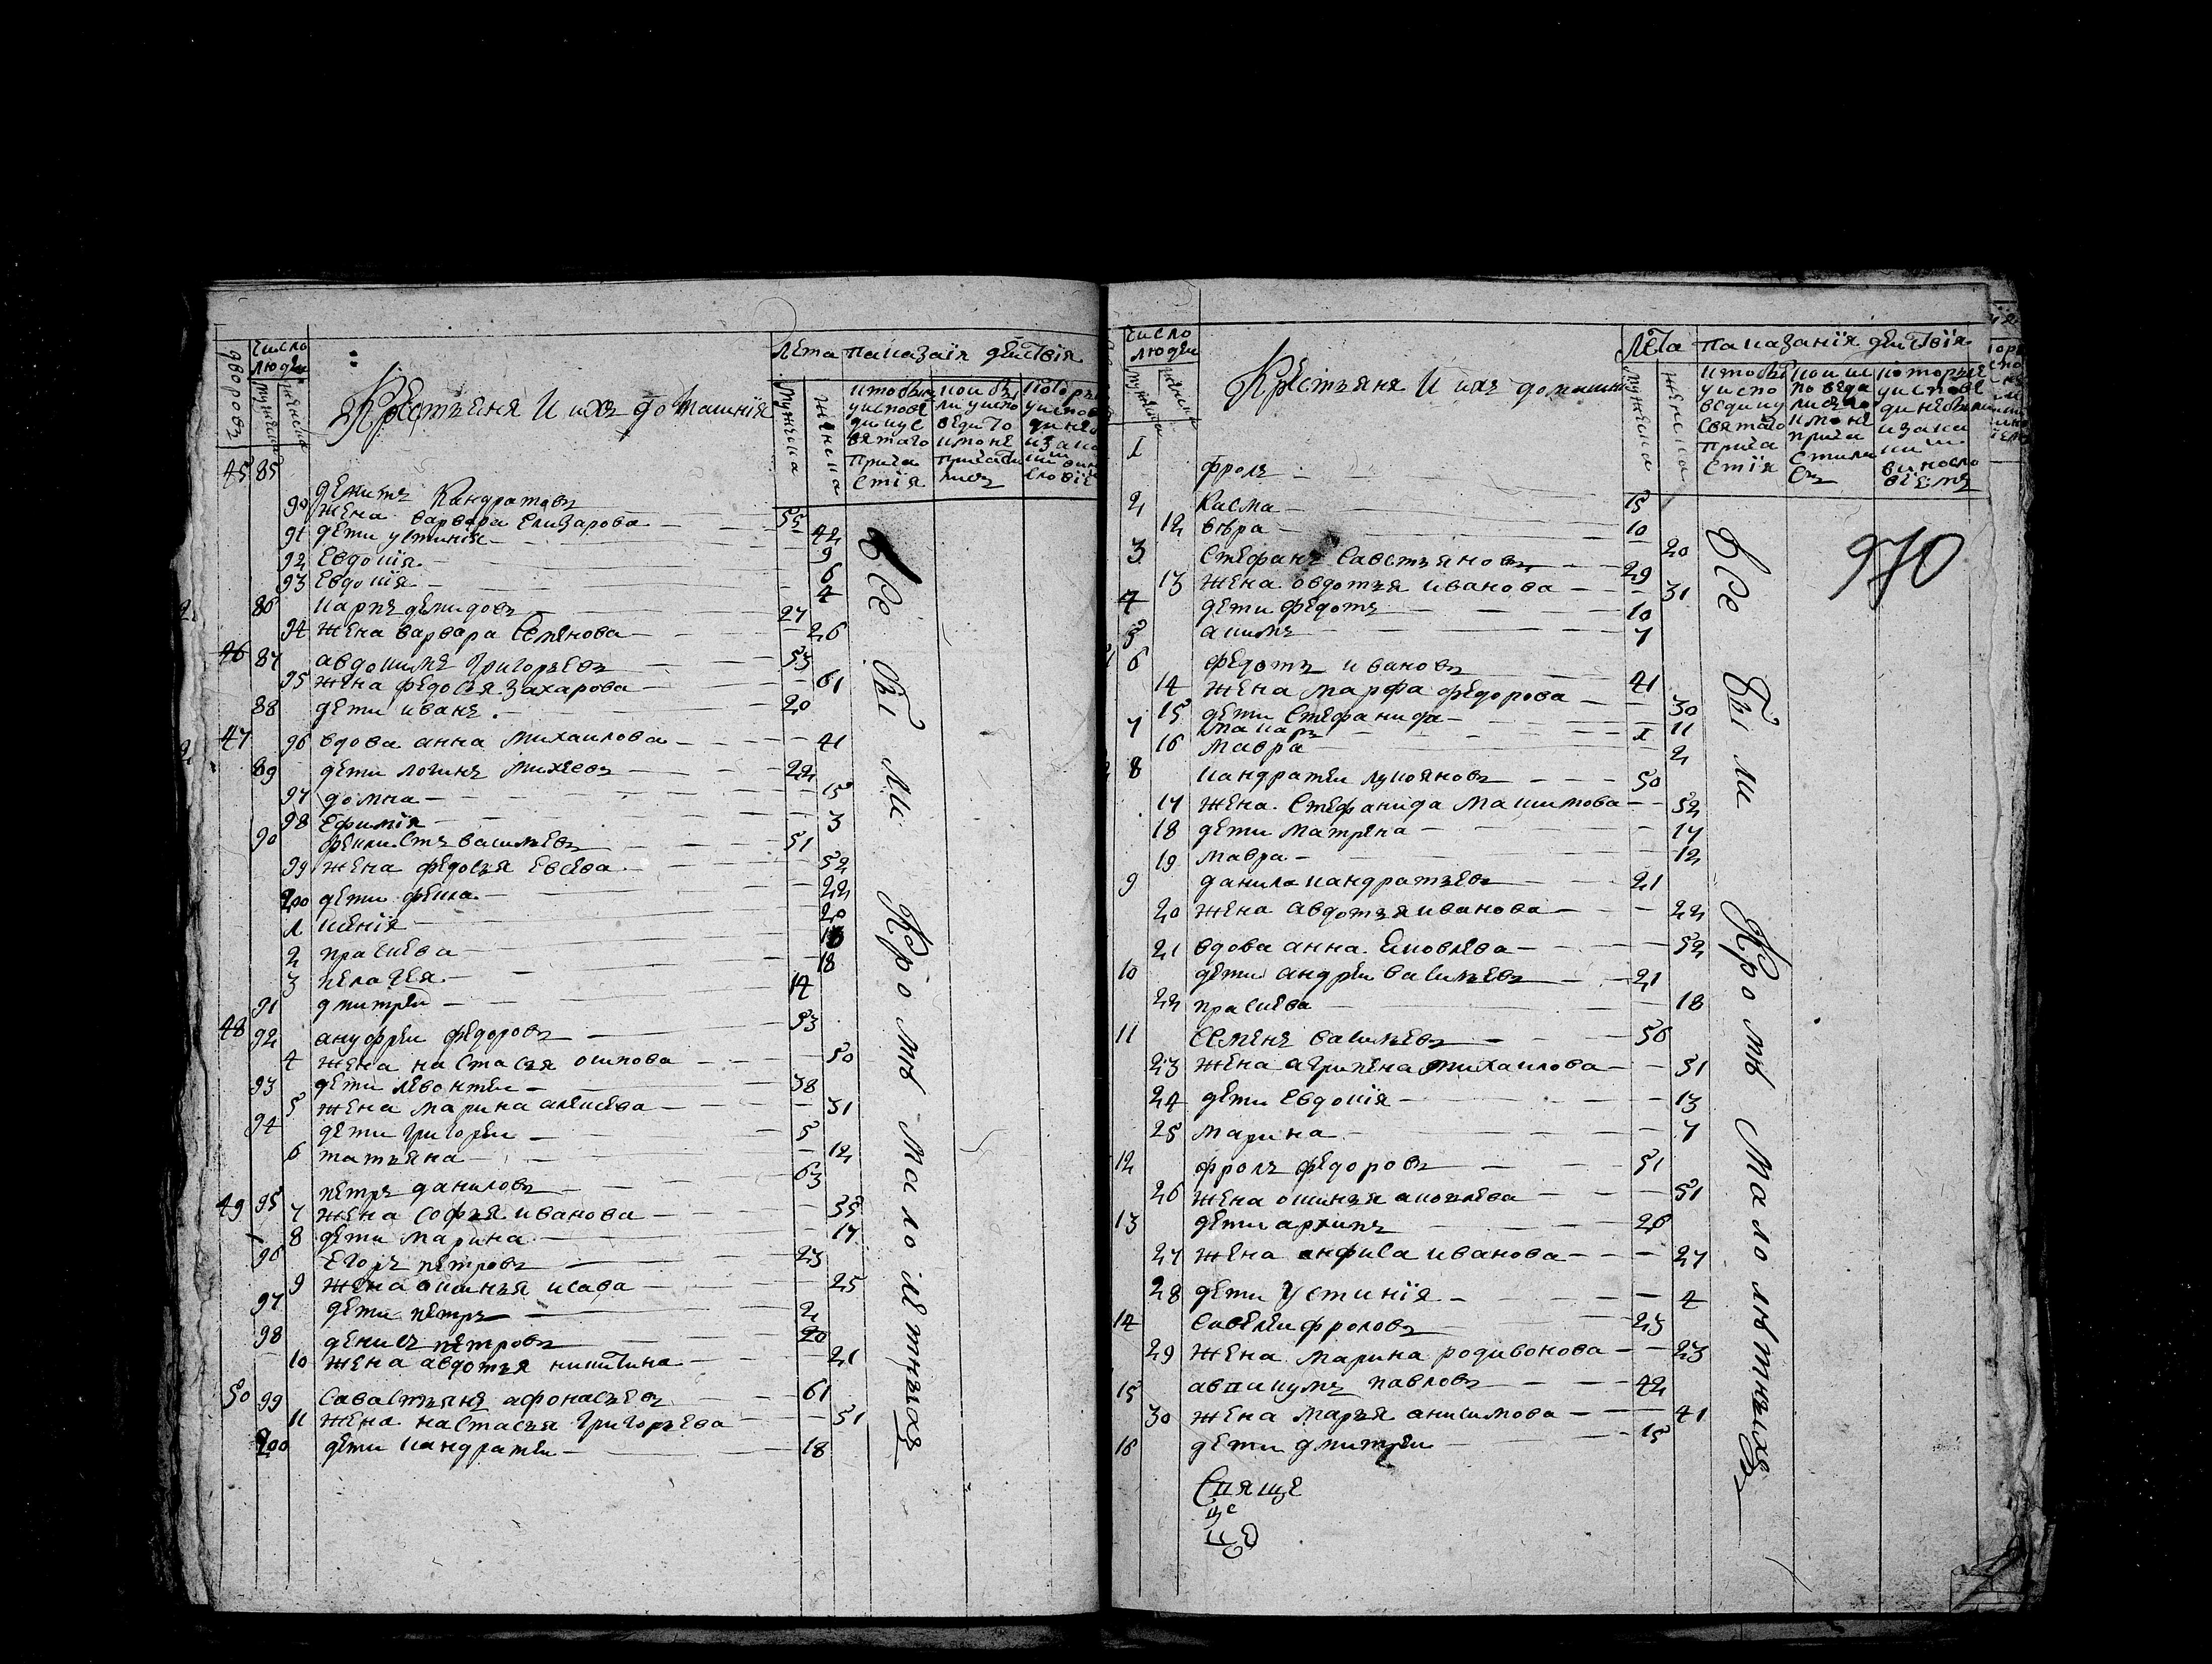 дворовъ
число людеи
мужеска
женска
Крестьяня И ихъ домашнїя
лета
показаїя действїя
мужеска
женска
ктобылъ у испове ди и у с вятаго прича стїя
кои бы ли у испо веди то кмо не причасти лись
которые у испове ди не
45 85 демитъ Кандратовъ 55
90 жена варвара Елизарова 42
91 дети устинїя 9
92 Евдокїя 6
93 Евдокїя 4
86 карпъ демидовъ 27
94 жена варвара Семенова 26
46 87 авдокимъ Григорьевъ 53
95 жена федосья захарова 61
88 дети иванъ 20
47 96 вдова анна михаилова 41
89 дети логинъ михеевъ 22
97 домна 15
98 Ефимїя 3
90 фекистъ васильевъ 51
99 жена федосья Евсева 52
200 дети фекла 22
1 ксенїя 20
2 прасцева
3 пелагея 18
91 дмитреи 14
48 92 ануфреи федоровъ 53
4 жена настасья осипова 50
93 дети левонтеи 38
5 жена марина алексева 31
94 дети григореи 5
6 татьяна 12
49 95 петръ даниловъ 63
7 жена софья иванова 35
8 дети марина 17
96 Егоръ петровъ 23
9 жена аксинья исава 25
97 дети петръ 2
98 денисъ петровъ 20
10 жена авдотья никитина 21
50 99 савастьянъ афонасьевъ 61
11 жена настасья григорьева 51
200 дети кандратеи 18
все были Кроме малолетныхъ
число людеи
мужеска
женска
Крестьяня И ихъ домашн
лета
показанїя действїя
мужеска
женска
ктобы у испо веди и у святаго прича стїя
кои ис поведа лись кмоне прича стили сь
которые у испове ди не были изаки ми виносло вїемъ
1 фролъ 15
2 касма 10
12 вѣра 20
3 Стефанъ Савстьяновъ 29
13 жена овдотья иванова 31
4 дети федотъ 10
5 акимъ 7
6 федотъ ивановъ 41
14 жена марфа федорова 30
15 дети Стефанида 11
7 макаръ 1
16 мавра 2
8 кандратеи лукояновъ 50
17 жена Стефанида Макимова 52
18 дети матрена 17
19 мавра 12
9 данила кандратьевъ 21
20 жена авдотья иванова 22
21 вдова анна Ековлева 52
10 дети андреи васильевъ 21
22 прасцева 18
11 семенъ васильевъ 56
23 жена агрипена михаилова 51
24 дети евдокїя 13
25 марина 7
12 фролъ федоровъ 51
26 жена оксинья аковлева 51
13 дети архипъ 26
27 жена анфиса иванова 27
28 дети устинїя 4
14 савелеи фроловъ 23
29 жена марина родивонова 23
15 авпакумъ павловъ 42
30 жена марья анисимова 41
16 дети дмитреи 15
все были Кромѣ Малолѣтныхъ
970